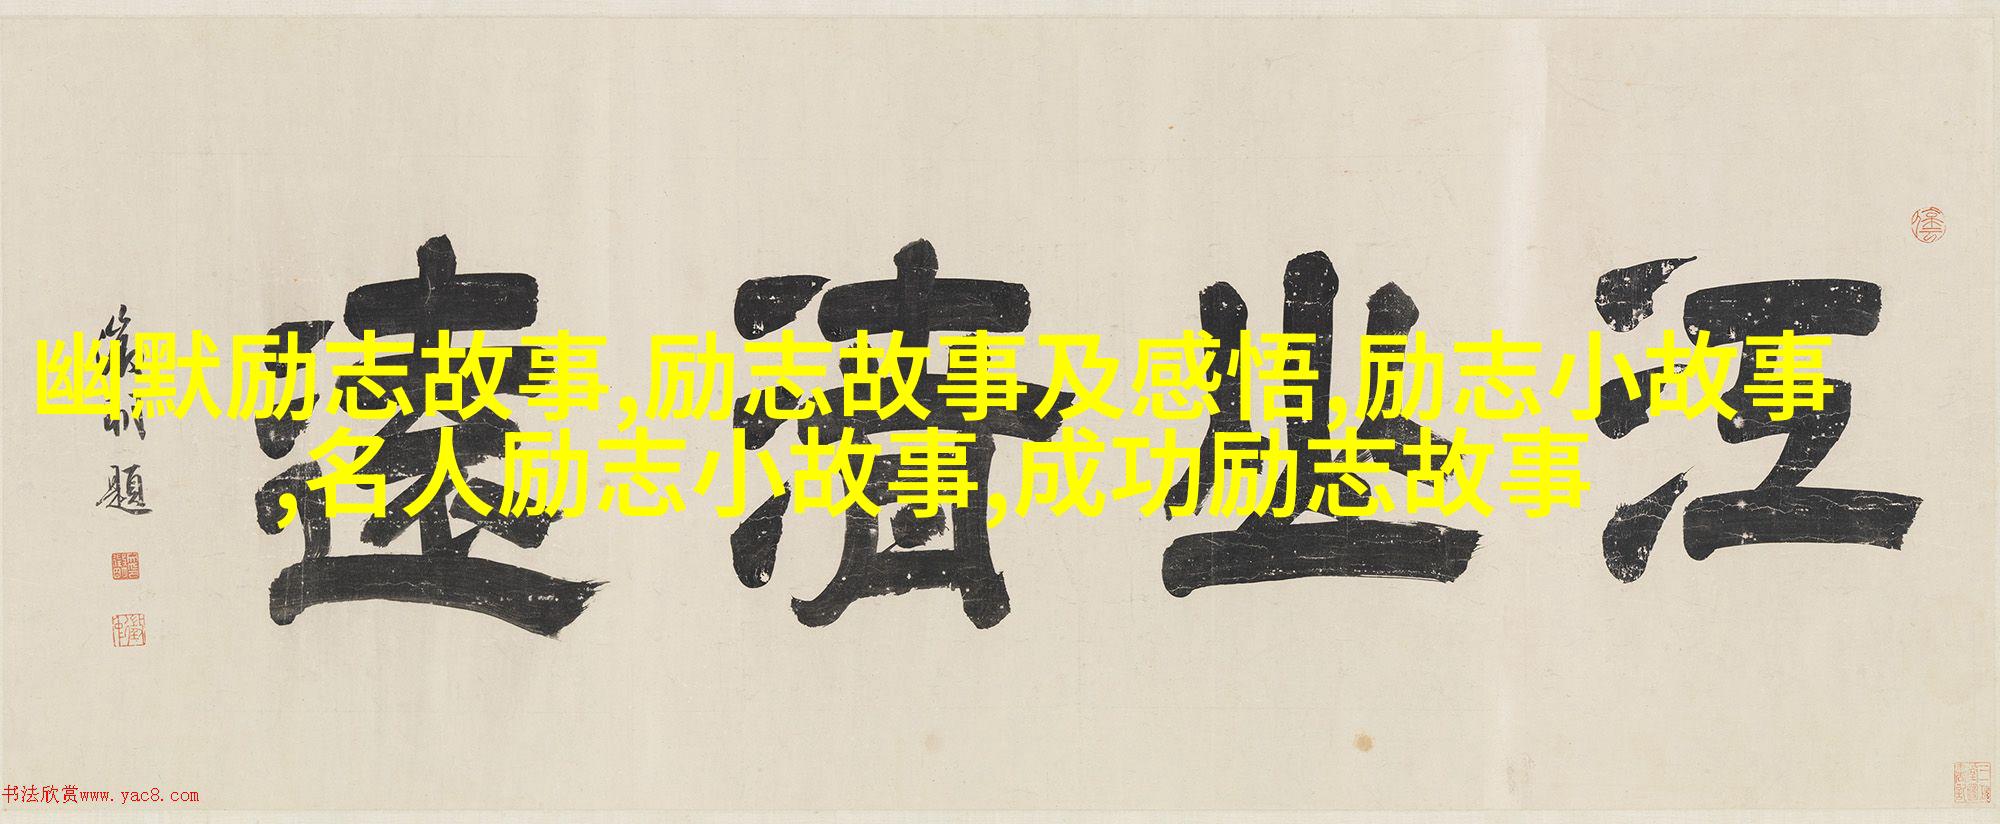 江山清遠
徵明題
幽默励志故事,励志故事及感悟,励志小故事
,名人励志小故事,成功励志故事
书法欣赏www.yac8.com